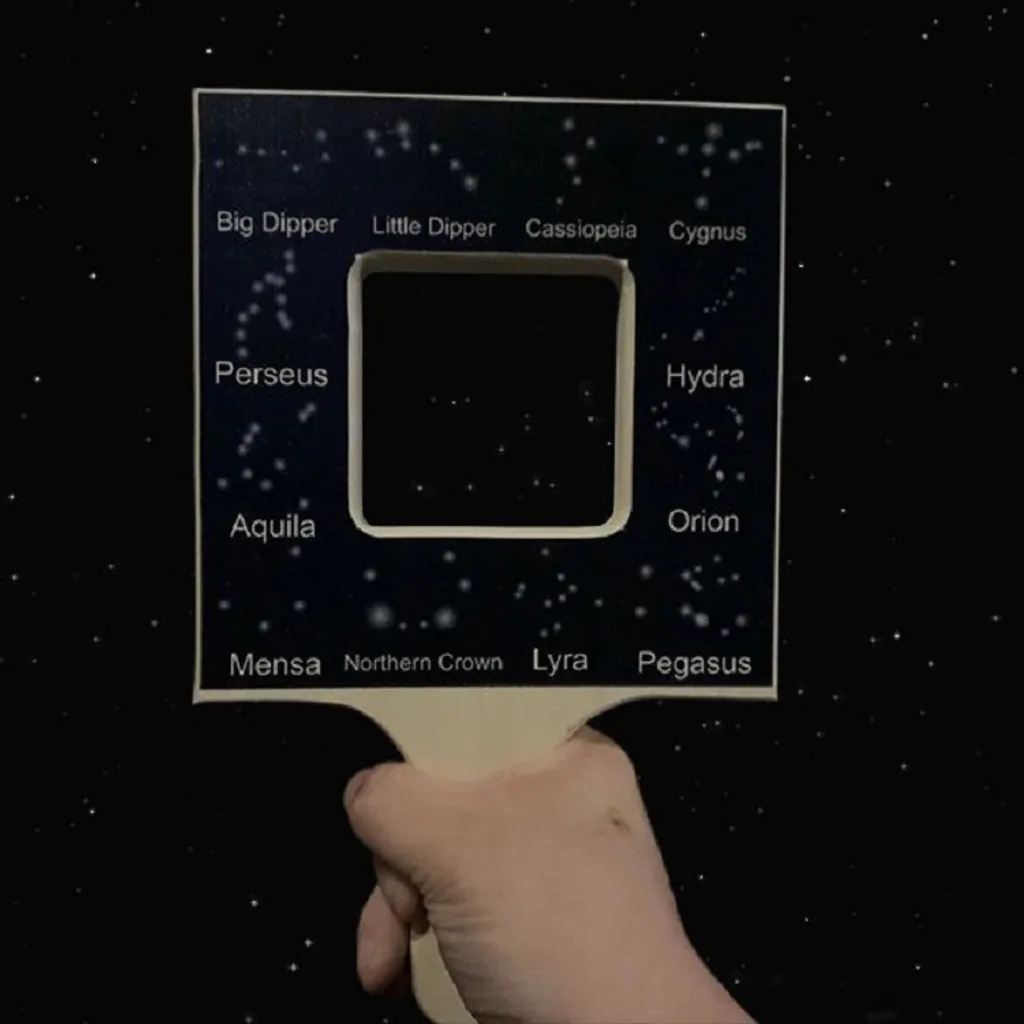 Big Dipper Little Dipper Cassiopeia Cygnus
Perseus
Hydra
Aquila
Orion
Mensa Northern Crown Lyra Pegasus